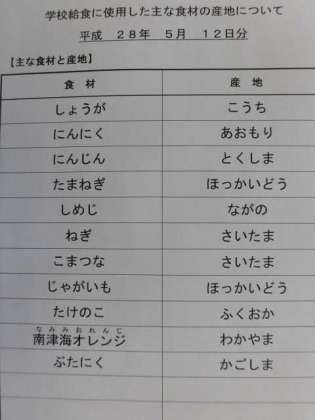 学校給食に使用した主な食材の産地について
平成 28年 5月 12日分
【主な食材と産地】
食 材 産 地
しょうが こうち
にんにく あおもり
にんじん とくしま
たまねぎ ほっかいどう
しめじ ながの
ねぎ さいたま
こまつな さいたま
じゃがいも ほっかいどう
たけのこ ふくおか
なみみおれんじ
南津海オレンジ わかやま
ぶたにく かごしま